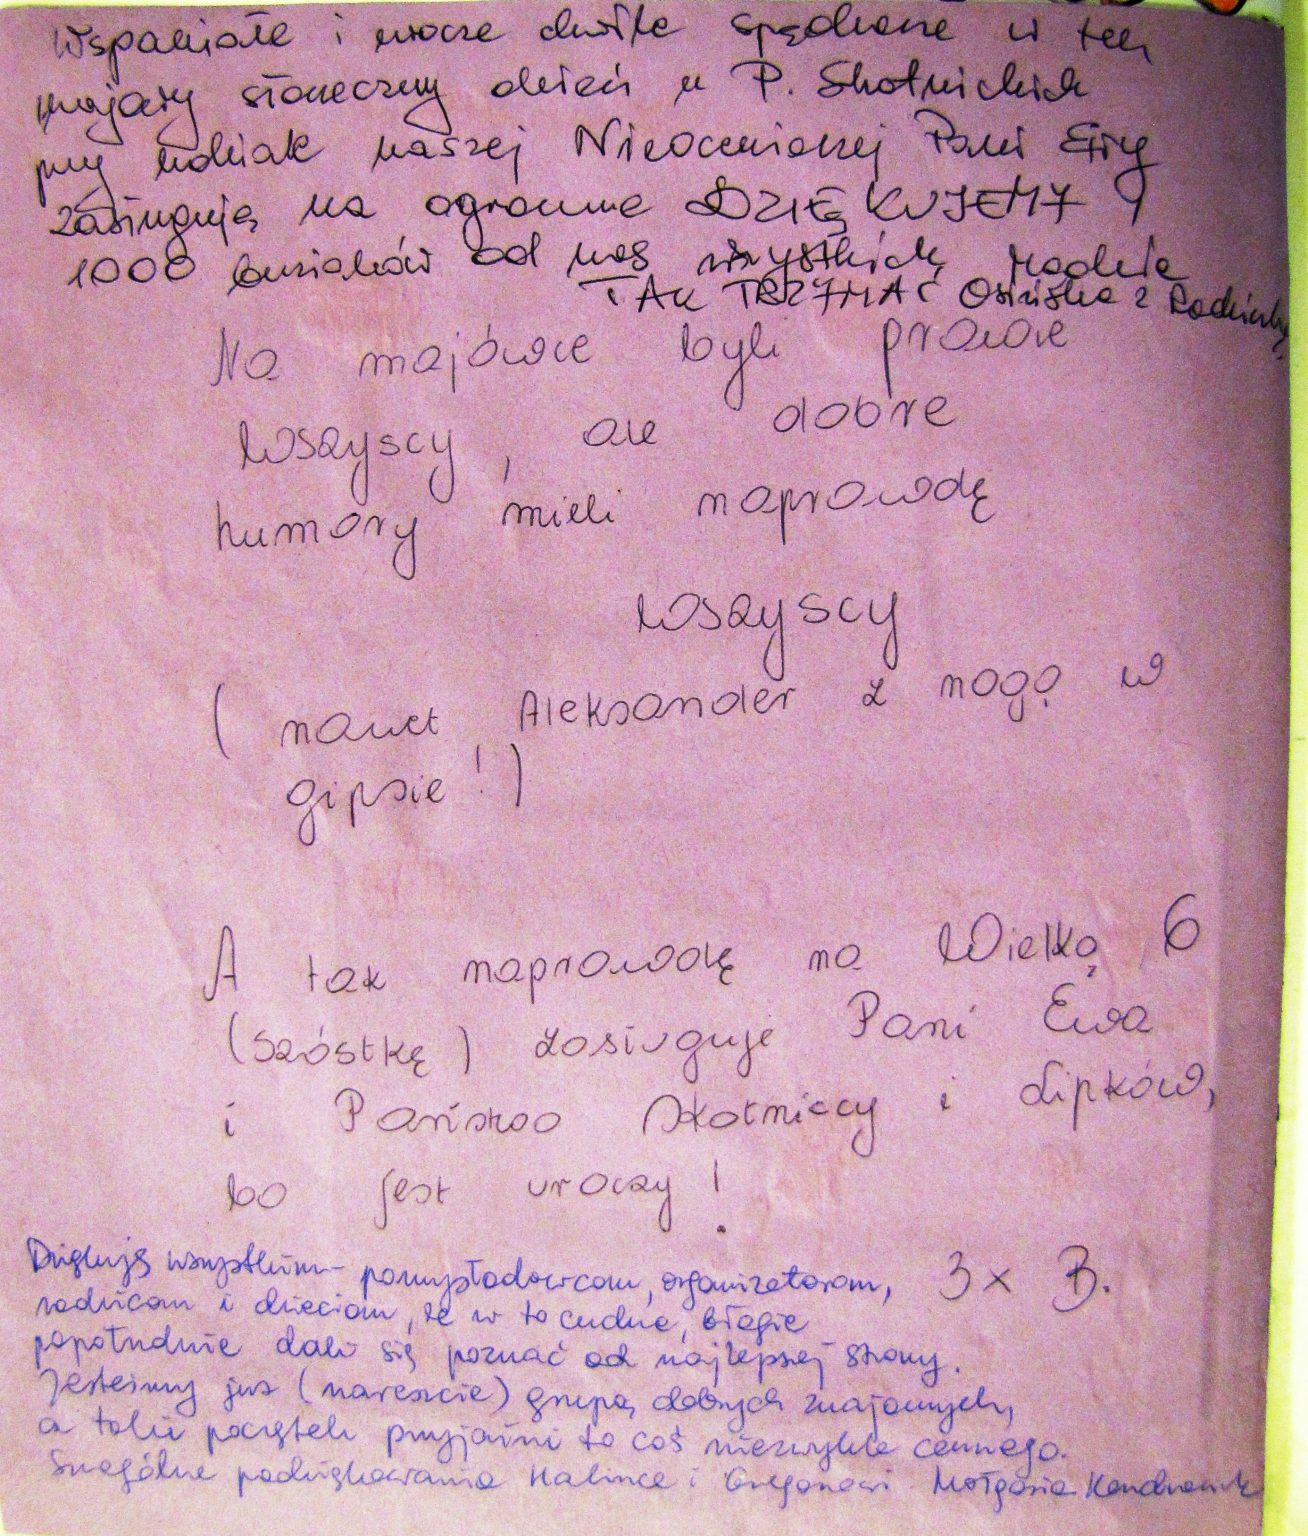 Wspaniałe i urocze chwile spędzone w ten
majowy słoneczny dzień u P. Skotnickich
przy udziale naszej Nieocenionej Pani Ewy
zasługują na ogromne DZIĘKUJEMY !
1000 buziaków od nas wszystkich
TAK TRZYMAĆ z Rodzinką
Na majówce byli prawie
wszyscy, ale dobre
humory mieli naprawdę
wszyscy
(nawet Aleksander z nogą w
gipsie!)
A tak naprawdę na Wielką 6
(szóstkę) zasługuje Pani Ewa
i Państwo Skotniccy i Lipków,
bo jest uroczy!
3 x B.
Dziękuję wszystkim - pomysłodawcom, organizatorom,
rodzicom i dzieciom, że w to cudne, błogie
popołudnie dali się poznać od najlepszej strony.
Jesteśmy już (nareszcie) grupą dobrych znajomych,
a taki początek przyjaźni to coś niezwykle cennego.
Szczególne podziękowania Halince i Grzegorzowi. Małgosia